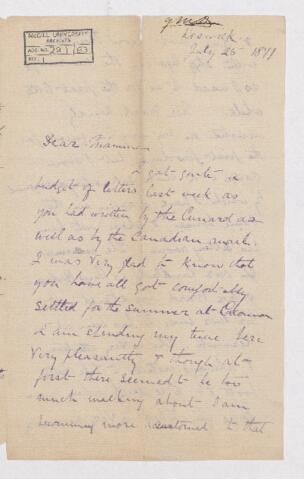 McGILL UNIVERSITY
ARCHIVES
ACC. NO.
REF. 1
Keswick
July 25 1871
Dear Mamma
I got quite a
budget of letters last week as
you had written by the Cunard as
well as by the Canadian mail.
I was very glad to know that
you have all got comfortably
settled for the summer at
I am spending my time here
very pleasantly & though at
first there seemed to be too
much walking about I am
becoming more accustomed to that